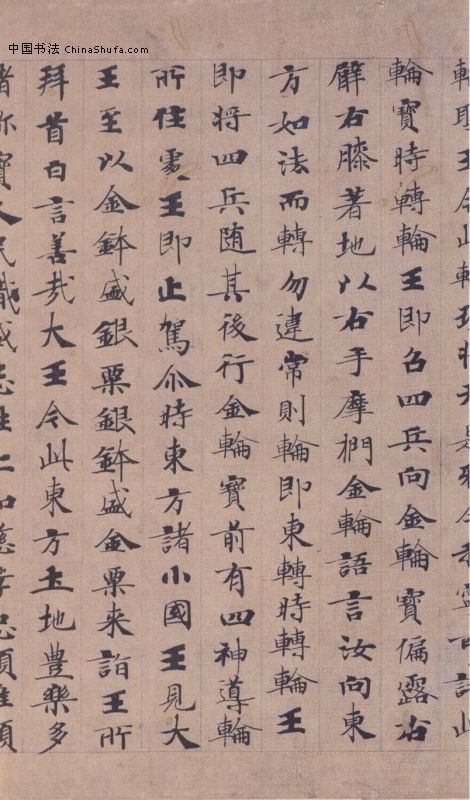 中国书法 ChinaShufa.com
輪寶時轉輪王即召四兵向金輪寶偏露右
臂右膝著地以右手摩捫金輪語言汝向東
方如法而轉勿違常則輪即東轉時轉輪王
即将四兵随其後行金輪寶前有四神導輪
所住處王即止駕尒時東方諸小國王見大
王至以金鉢盛銀粟銀鉢盛金粟来詣王所
拜首白言善哉大王今此東方土地豊樂多
諸珎寶人民熾盛志性仁和慈孝忠順唯願